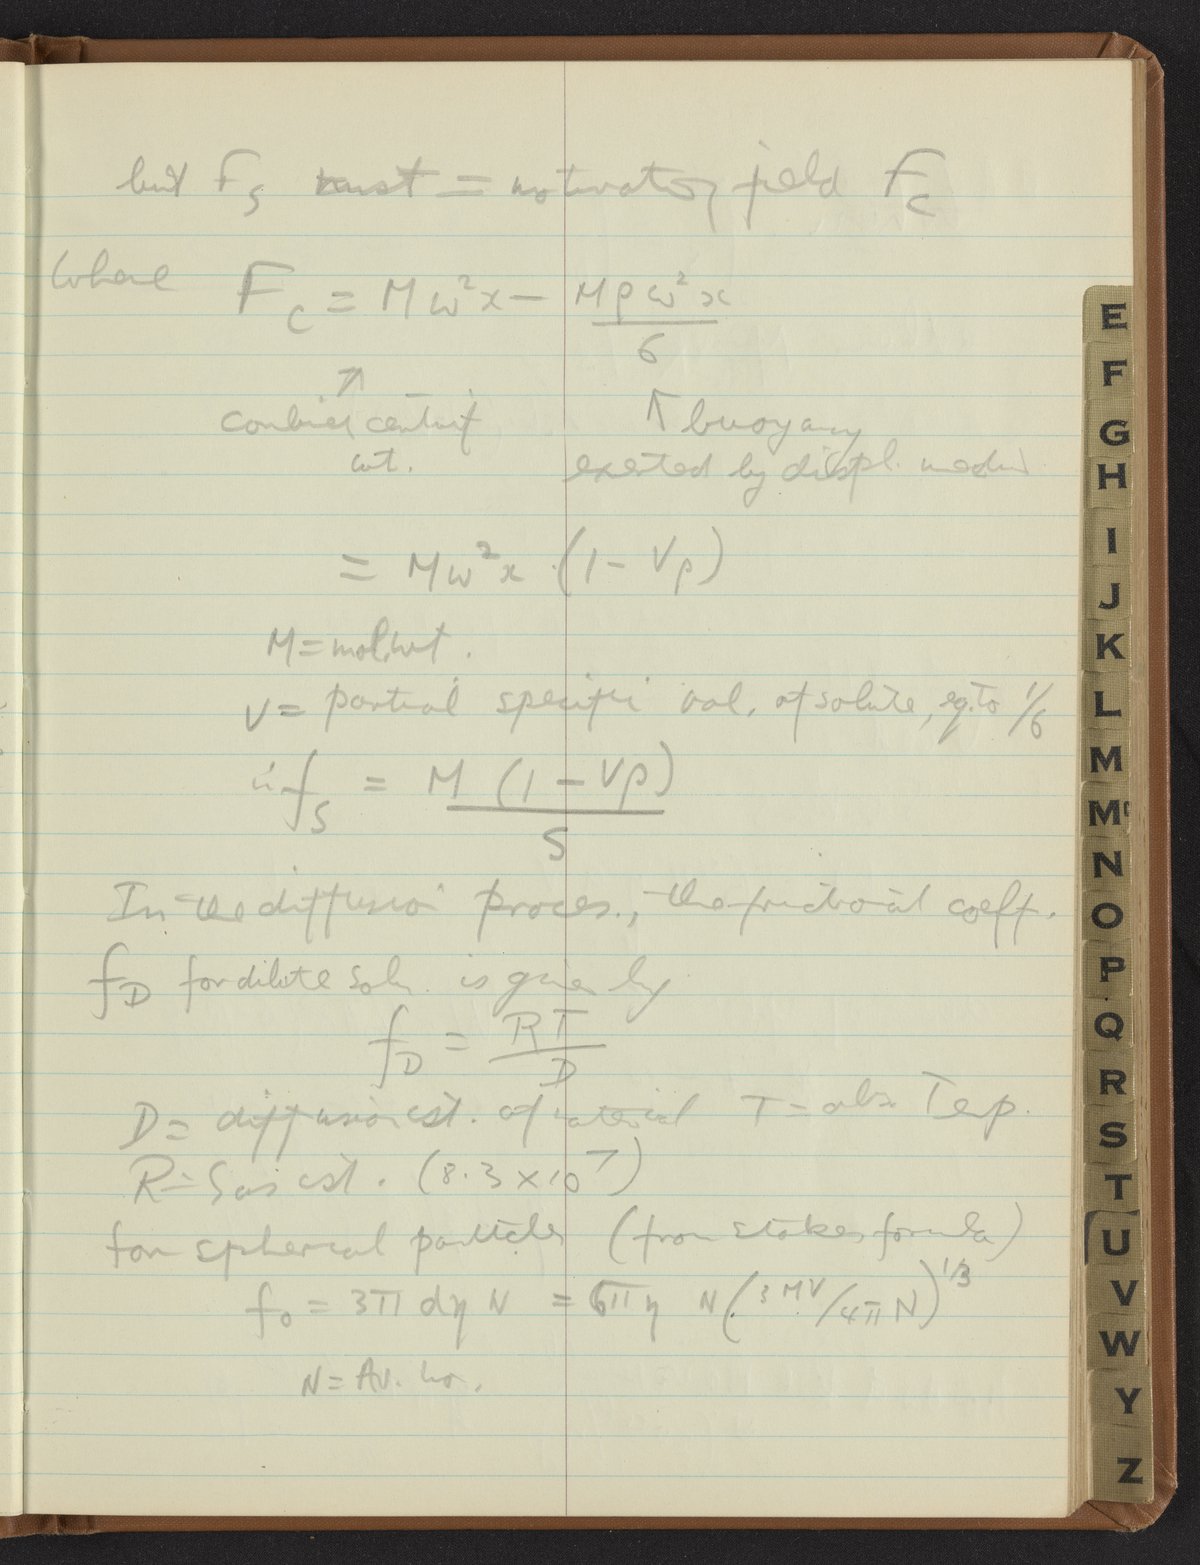 but F_S must = motivatory field F_C
where F_C = Mω²x − Mρω²x/6
↗ ↑ buoyancy
combined centrif
wt. exerted by displ. medium
= Mω²x (1 − Vρ)
M = mol. wt.
V = partial specific vol. of solute, eq. to 1/6
∴ f_S = M (1 − Vρ)/S
In the diffusion process, the frictional coeff.
f_D for dilute soln. is given by
f_D = RT/D
D = diffusion cst. of material T = abs Temp.
R = Gas cst. (8.3 × 10⁷)
for spherical particles (from stokes formula)
f_o = 3π dη N = 6π η N (3MV/4πN)^1/3
N = Av. no.
E
F
G
H
I
J
K
L
M
Mᶜ
N
O
P
Q
R
S
T
U
V
W
Y
Z